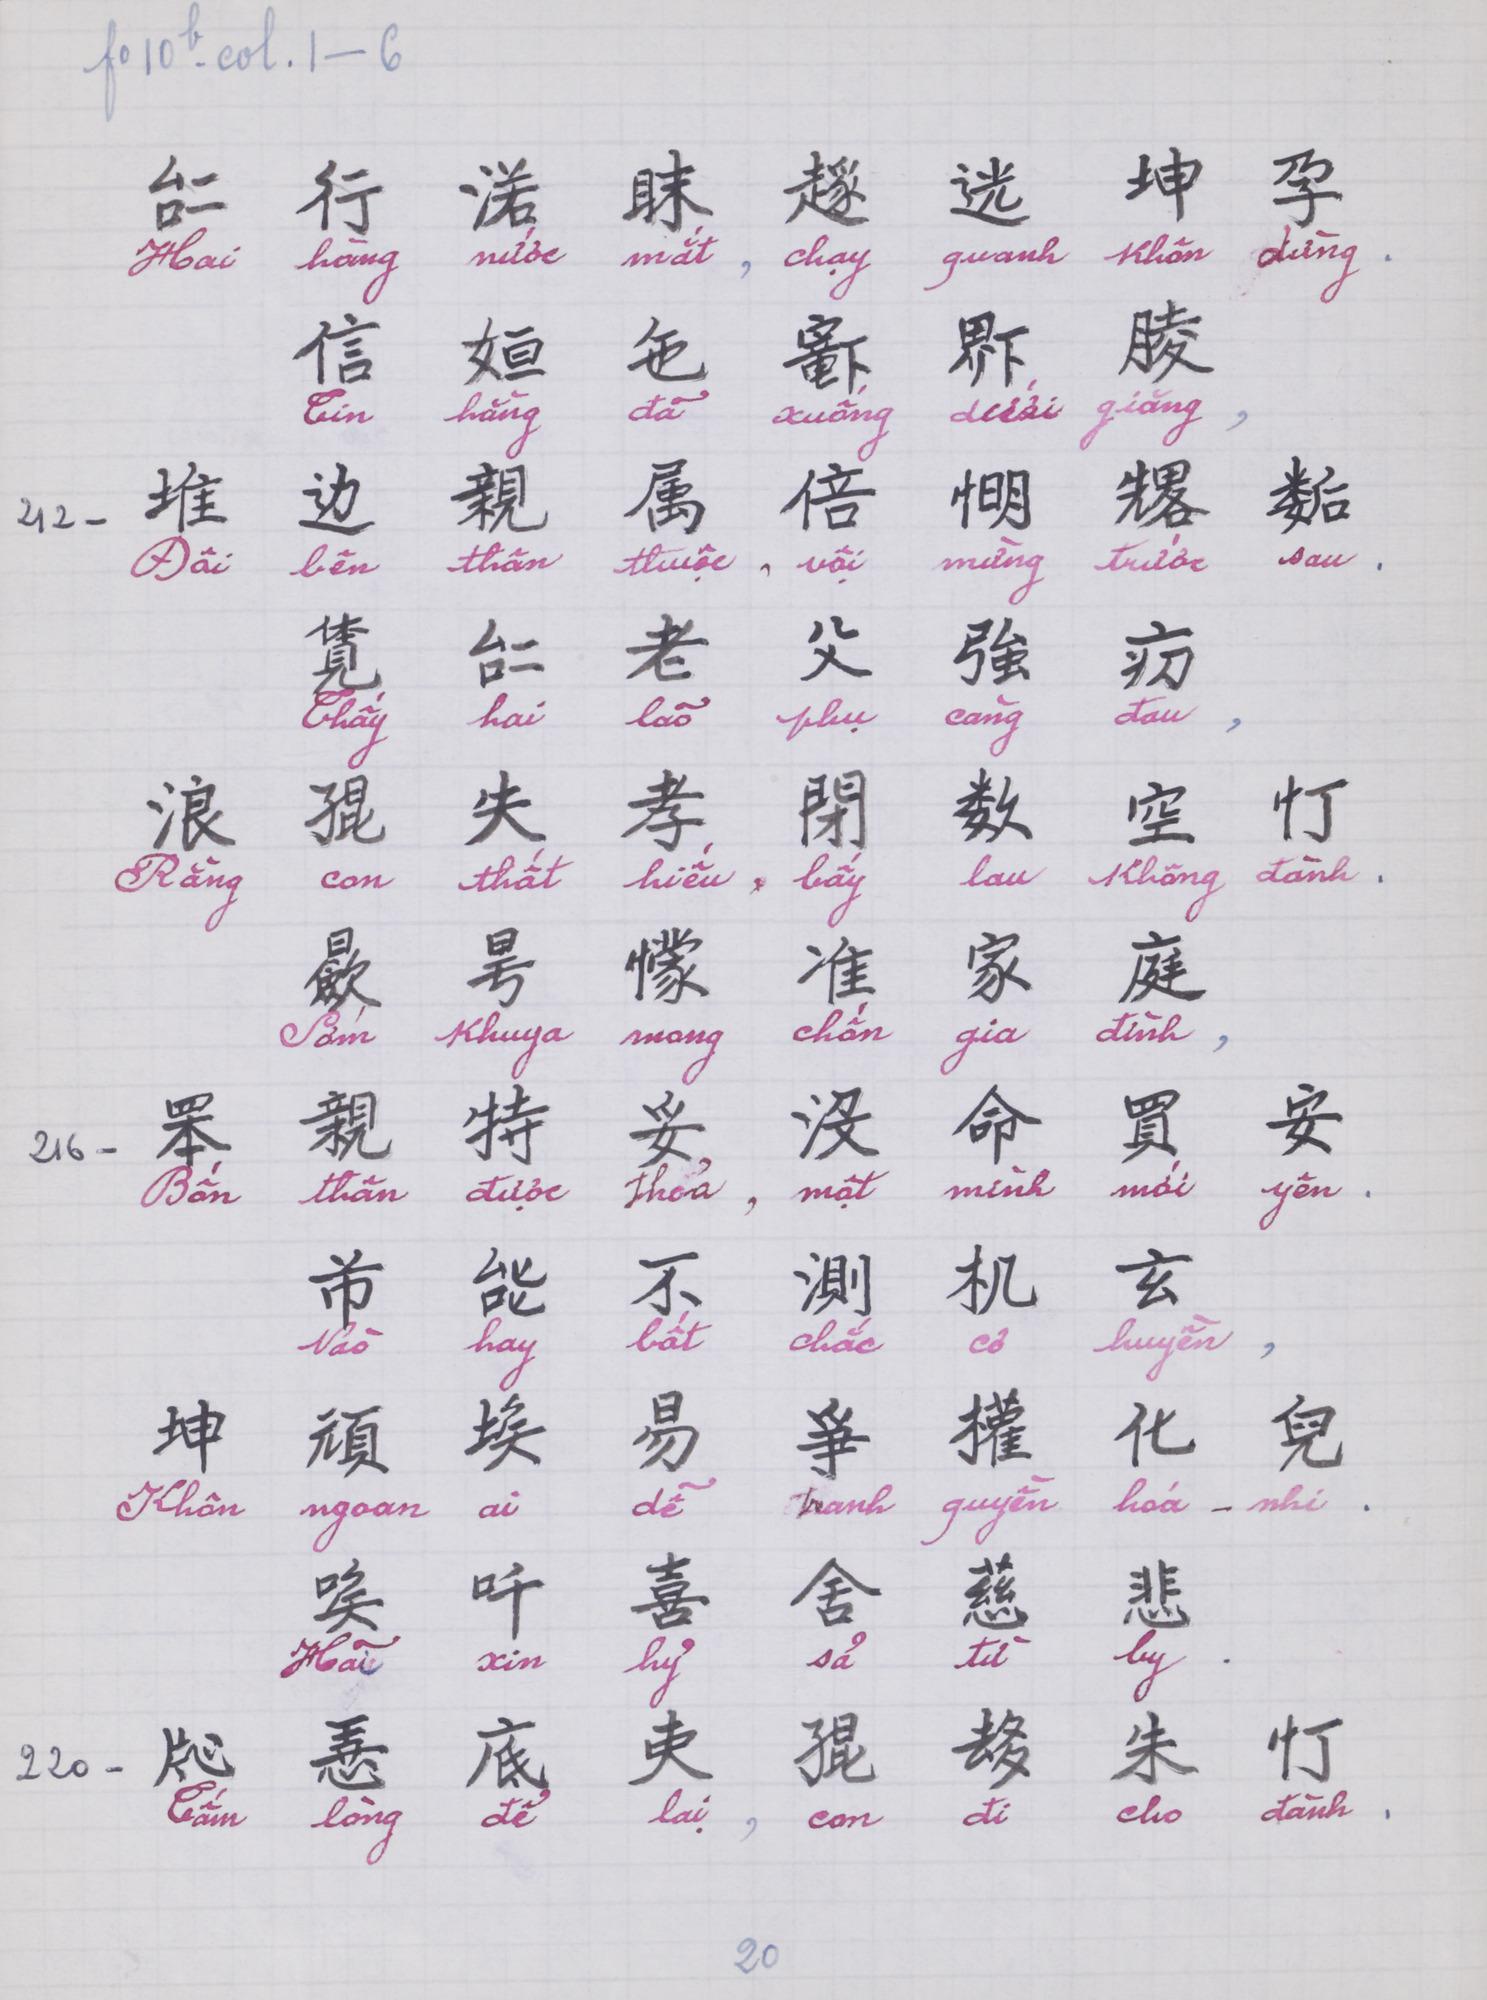 fo 10b. col. 1 — 6
𠄩 行 渃 眜 𧼋 迯 坤 孕
Hai hàng nước mắt, chạy quanh khôn dừng.
信 姮 㐌 𨖲 𤲂 䏾
Tin hằng đã xuống dưới giăng,
212- 堆 边 親 属 倍 𢜏 𠓀 𡢐
Đôi bên thân thuộc, vội mừng trước sau.
覓 𠄩 老 父 強 疠
Thấy hai lão phụ càng đau,
浪 𡥵 失 孝 閉 数 空 忊
Rằng con thất hiếu, bấy lau không đành.
𣋽 𣌒 懞 准 家 庭
Sớm khuya mong chốn gia đình,
216- 𦊛 親 特 妥 没 命 買 安
Bốn thân được thỏa, một mình mới yên.
𢂞 咍 不 測 机 玄
Nào hay bất chắc cơ huyền,
坤 頑 埃 易 爭 權 化 兒
Khôn ngoan ai dễ tranh quyền hoá - nhi.
唉 吀 喜 舍 慈 悲
Hãi xin hỷ sả từ by.
220- 𤗲 𢚸 底 吏 𡥵 𠫾 朱 忊
Tấm lòng để lại, con đi cho đành.
20